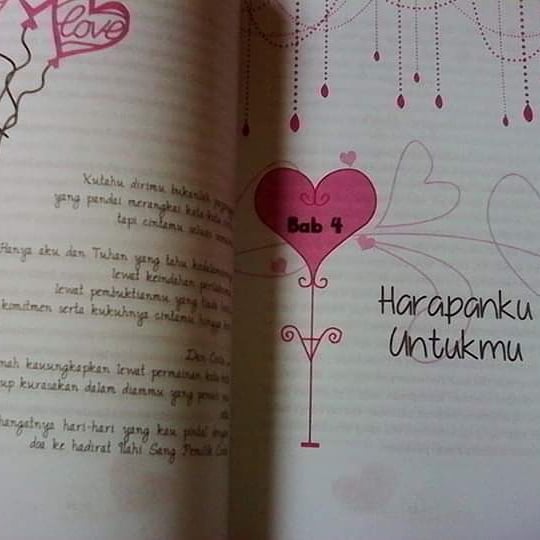 love
Kutahu dirimu bukanlah
yang pandai merangkai kata-kata
tapi cintamu selalu
Hanya aku dan Tuhan yang tahu
lewat keindahan
lewat pembuktianmu yang tiada
komitmen serta kukuhnya cintamu hingga
Dan
nah kauungkapkan lewat permainan
up kurasakan dalam diammu yang
hangatnya hari-hari yang kau
doa ke hadirat Ilahi Sang Pemilik
Bab 4
Harapanku
Untukmu